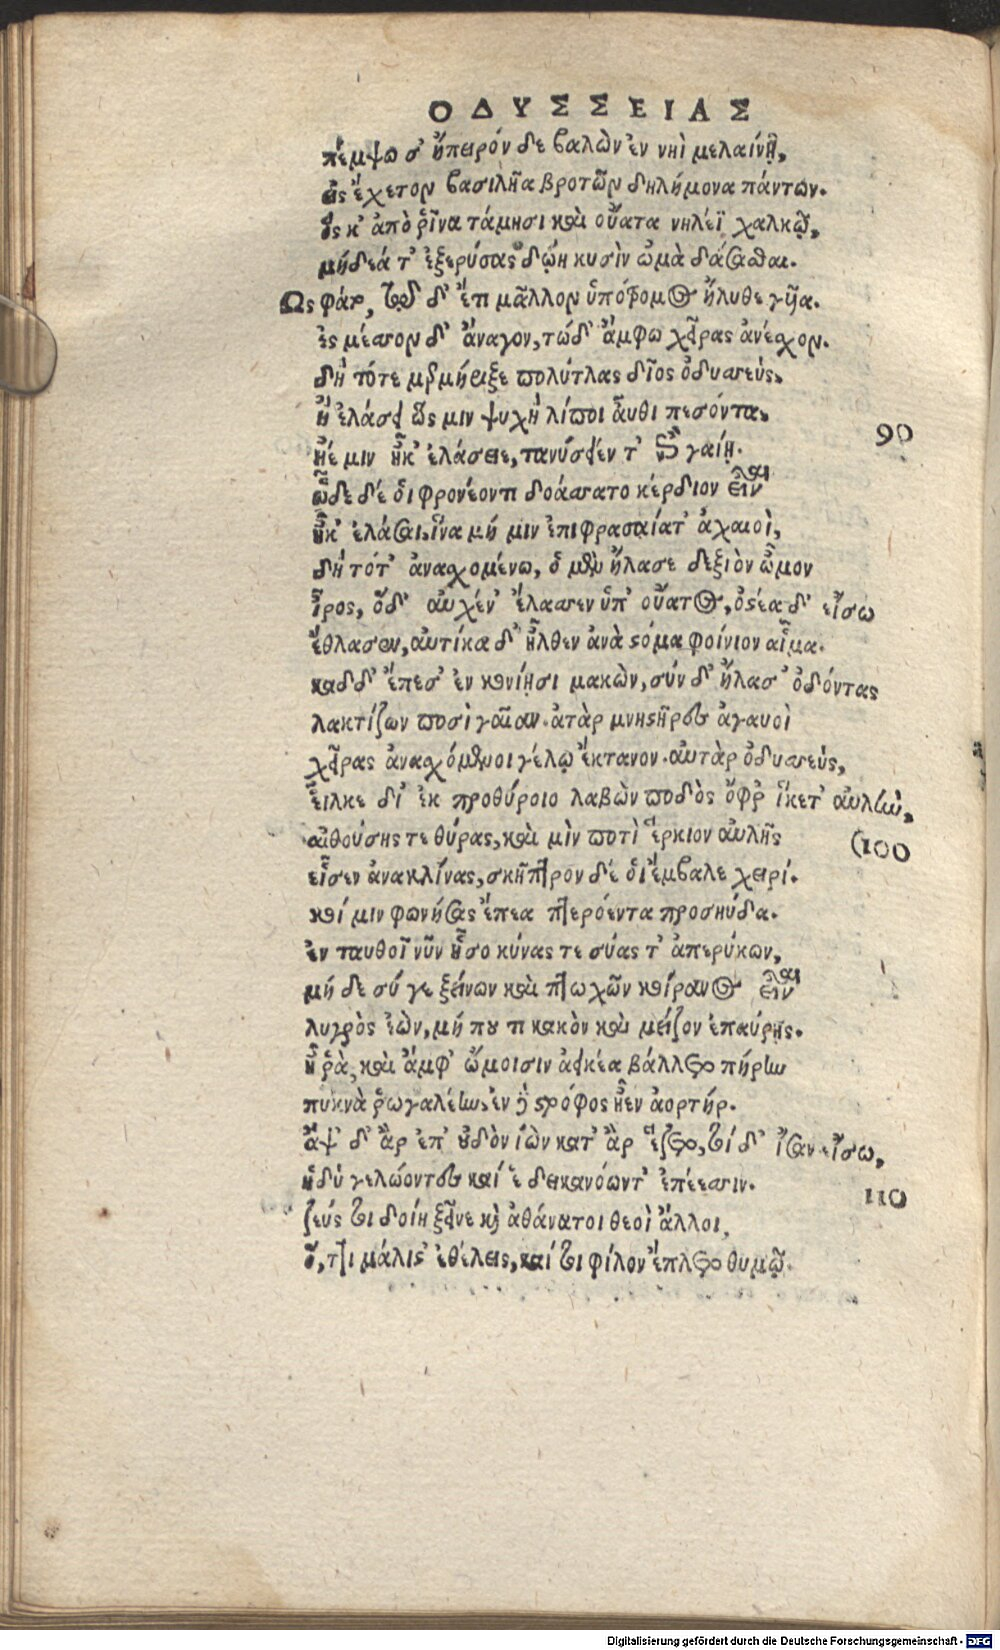 ΟΔΥΣΣΕΙΑΣ
πέμψω σ' ἤπειρόν δε βαλὼν ἐν νηῒ μελαίνῃ,
εἰς ἔχετον βασιλῆα βροτῶν δηλήμονα πάντων.
ὅς κ' ἀπὸ ῥῖνα τάμησι καὶ οὔατα νηλέϊ χαλκῷ,
μήδεά τ' ἐξερύσας δώῃ κυσὶν ὠμὰ δάσασθαι.
Ως φάτ, τῷ δ' ἔτι μᾶλλον ὑπότρομος ἤλυθε γυῖα.
ἐς μέσσον δ' ἄναγον, τώδ' ἄμφω χεῖρας ἀνέσχον.
δὴ τότε μερμήριξε πολύτλας δῖος ὀδυσσεύς,
ἢ ἐλάσει ὥς μιν ψυχὴ λίποι αὖθι πεσόντα,
90
ἠέ μιν ἦκ' ἐλάσειε, τανύσειέν τ' ἐπὶ γαίῃ.
ὧδε δέ οἱ φρονέοντι δοάσσατο κέρδιον εἶναι
ἦκ' ἐλάσαι, ἵνα μή μιν ἐπιφρασαίατ' ἀχαιοὶ,
δὴ τότ' ἀνασχομένω, ὁ μὲν ἤλασε δεξιὸν ὦμον
ἶρος, ὅδ' αὐχέν' ἔλασσεν ὑπ' οὔατος, ὀστέα δ' εἴσω
ἔθλασεν, αὐτίκα δ' ἦλθεν ἀνὰ στόμα φοίνιον αἷμα.
καδδ' ἔπεσ' ἐν κονίῃσι μακὼν, σύν δ' ἤλασ' ὀδόντας
λακτίζων ποσὶ γαῖαν. ἀτὰρ μνηστῆρες ἀγαυοὶ
χεῖρας ἀνασχόμενοι γέλῳ ἔκτανον. αὐτὰρ ὀδυσσεύς,
εἷλκε δι' ἐκ προθύροιο λαβὼν ποδὸς ὄφρ ἵκετ' αὐλὴν,
(100
αἰθούσης τε θύρας, καὶ μὶν ποτὶ ἕρκιον αὐλῆς
εἷσεν ἀνακλίνας, σκῆπτρον δέ οἱ ἔμβαλε χειρί.
καί μιν φωνήσας ἔπεα πτερόεντα προσηύδα.
ἐν ταυθοῖ νῦν ἧσο κύνας τε σύας τ' ἀπερύκων,
μή δε σύ γε ξείνων καὶ πτωχῶν κοίρανος εἶναι
λυγρὸς ἐὼν, μή που τι κακὸν καὶ μεῖζον ἐπαύρῃς.
ἦ ῥὰ, καὶ ἀμφ' ὤμοισιν ἀεικέα βάλλετο πήρην
πυκνὰ ῥωγαλέην, ἐν δὲ στρόφος ἦεν ἀορτήρ.
ἂψ δ' ἂρ ἐπ' οὐδὸν ἰὼν κατ' ἂρ ἕζετο, τοί δ' ἴσαν εἴσω,
ἡδὺ γελώοντες καί ἐ δεικανόωντ' ἐπέεσσιν.
110
ζεύς τοι δοίη ξεῖνε καὶ ἀθάνατοι θεοὶ ἄλλοι,
ὅ, ττι μάλιστ' ἐθέλεις, καί τοι φίλον ἔπλετο θυμῷ.
Digitalisierung gefördert durch die Deutsche Forschungsgemeinschaft - DFG